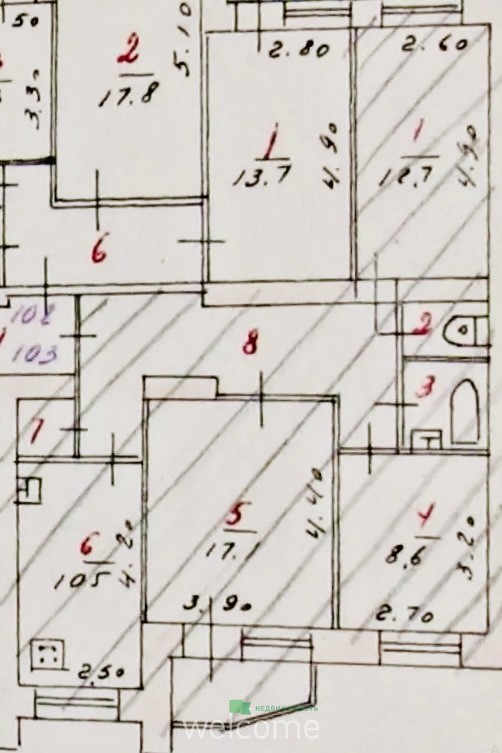 50
2
17.8
5.10
3.30
2.80
2.60
1
13.7
4.90
1
12.7
4.90
6
102
103
8
2
3
7
5
17.1
4.40
3.90
6
10.5
4.20
2.50
4
8.6
3.20
2.70
НЕДВИЖИМОСТЬ
welcome